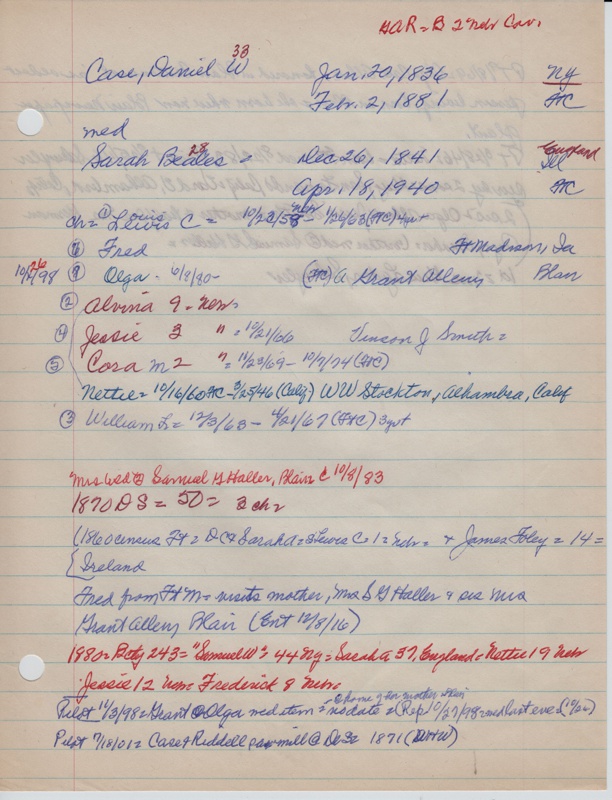 GAR = B 2 Nebr Cav.
33
Case, Daniel W Jan. 20, 1836 Ny
Febr. 2, 1881 FtC
med
28 England
Sarah Beales = Dec 26, 1841 Ill
Apri 18, 1940 FtC
ch = ① Louis Lewis C = 10/22/58 - 1/26/63 (FtC) 4y+
⑦ Fred Ft Madison, Ia
10/26/98 ⑧ Olga - 6/8/80 - (FtC) A Grant Allen Blair
② Alvina 9 - Nebr
④ Jessie 3 " = 10/21/66 Vinson J Smith =
⑤ Cora M 2 " = 11/23/69 - 10/7/74 (FtC)
Nettie = 10/16/60 FtC - 3/25/46 (Calif) WW Stockton, Alhambra, Calif
③ William L = 12/3/63 - 4/21/67 (FtC) 3y+
Mrs Wid @ Samuel G Haller, Blair C 10/8/83
1870 DS = 50 = 3 ch =
(1860 census Ft = DC & Sarah a = & Lewis C 1 = Nebr = + James Foley = 14 =
Ireland
Fred from Ft M = visits mother, Mrs S G Haller & sis Mrs
Grant Allen, Blair (Ent 12/8/16)
1880 = 243 = "Samuel W" 44 Ny = Sarah a 37, England = Nettie 19 Nebr
Jessie 12 Nebr = Frederick 8 Nebr =
@ home of her mother
Pilot 11/3/98 = Grant & Olga med item = no date = (Rep 10/27/98 = med last eve
Pilot 7/18/01 = Case & Riddell sawmill @ 1871 (W+W)